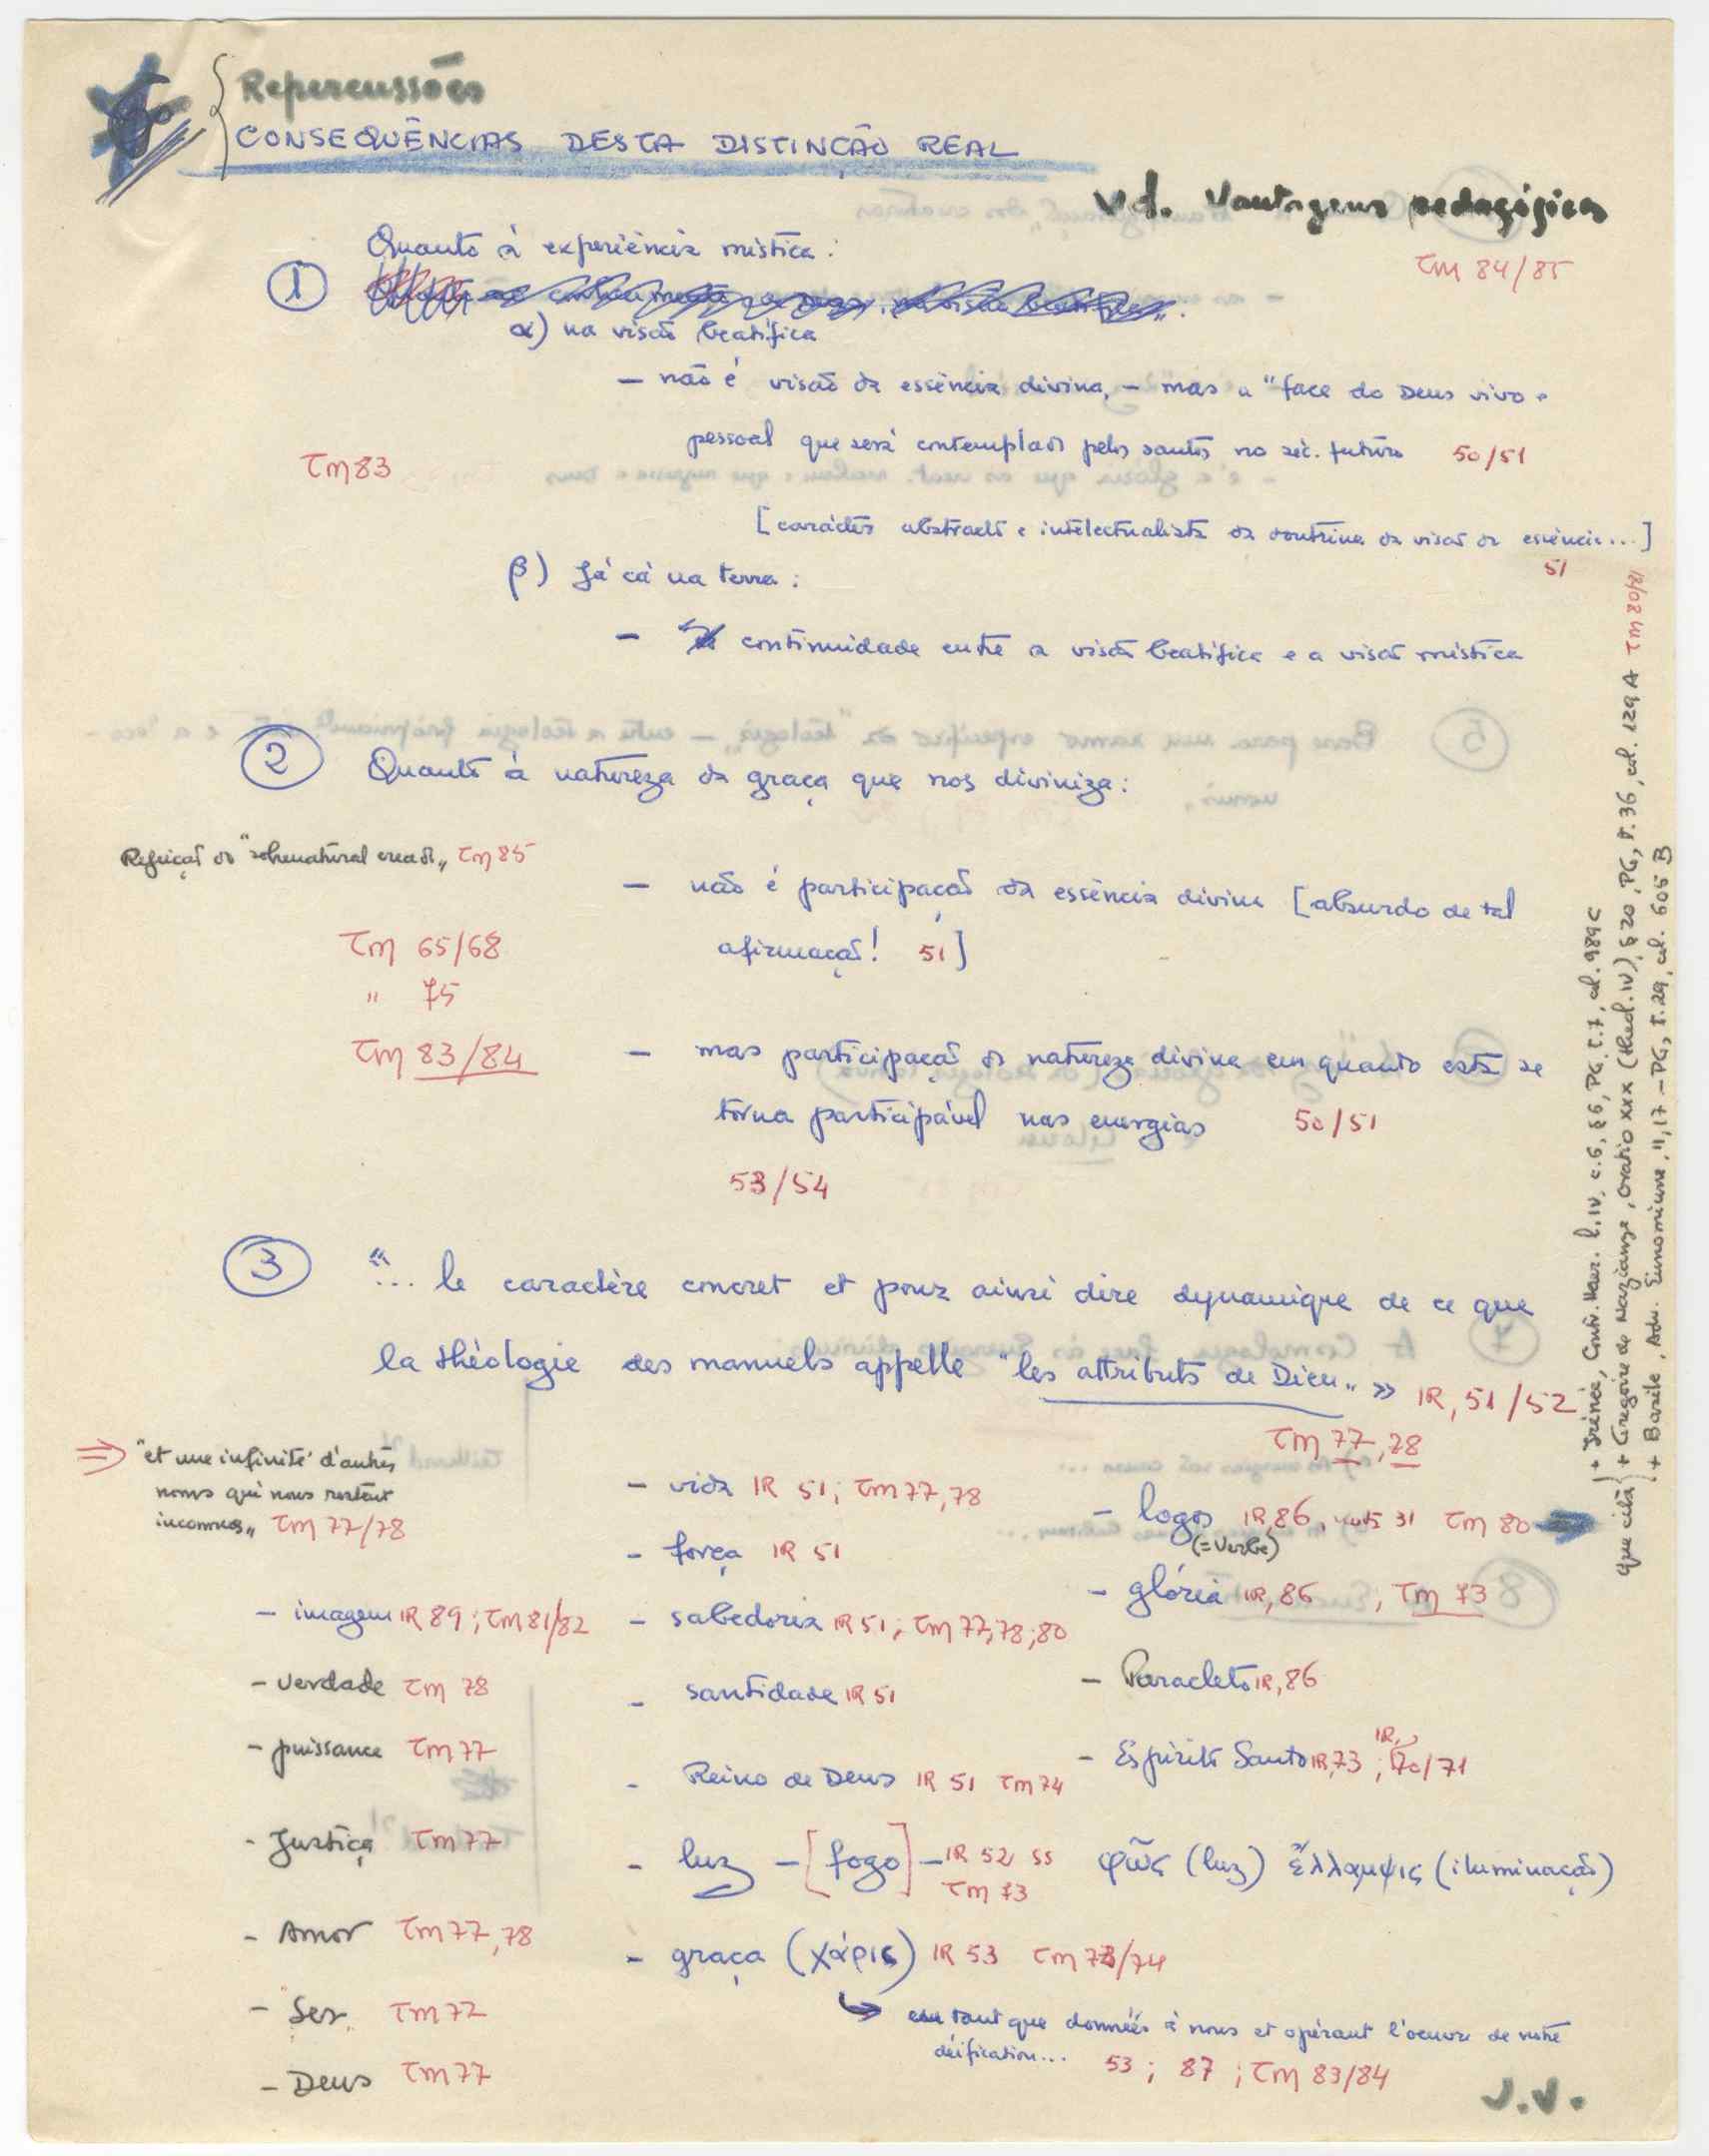 Repercussões
CONSEQUÊNCIAS DESTA DISTINÇÃO REAL
vd. Vantagens pedagógicas
TM 84/85
Quanto à experiência mística:
1
α) na visão beatífica
– não é visão da essência divina, – mas a "face do Deus vivo e
pessoal que será contemplado pelos santos no séc. futuro 50/51
TM 83
[carácter abstracto e intelectualista da doutrina da visão da essência...]
51
β) Já cá na terra:
– continuidade entre a visão beatífica e a visão mística
2 Quanto à natureza da graça que nos diviniza:
Rejeição do "sobrenatural criado" TM 85
– não é participação da essência divina [absurdo de tal
afirmação! 51]
TM 65/68
" 75
TM 83/84
– mas participação da natureza divina em quanto esta se
torna participável nas energias 50/51
53/54
3 "... le caractère concret et pour ainsi dire dynamique de ce que
la théologie des manuels appelle "les attributs de Dieu" » IR, 51/52
TM 77, 78
⇒ "et une infinité d'autres
noms qui nous restent
inconnus" TM 77/78
– imagem IR 89; TM 81/82
– Verdade TM 78
– puissance TM 77
– Justiça TM 77
– Amor TM 77, 78
– "Ser" TM 72
– Deus TM 77
– vida IR 51; TM 77, 78
– força IR 51
– sabedoria IR 51; TM 77, 78; 80
– santidade IR 51
– Reino de Deus IR 51 TM 74
– luz – [fogo] – IR 52 ss
TM 73
φῶς (luz) ἔλλαμψις (iluminação)
– graça (χάρις) IR 53 TM 73/74
en tant que données à nous et opérant l'oeuvre de notre
déification... 53; 87; TM 83/84
– logos IR, 86, nota 31 TM 80
(= Verbe)
– glória IR, 86, TM 73
– Paracleto IR, 86
– Espírito Santo IR, 73; IR, 70/71
J.V.
que cita
+ Irénée, Contr. Haer. l. IV, c. 6, § 6, PG. t. 7, col. 989 C
+ Gregoire de Nazianze, Oratio XXX (theol. IV) § 20, PG, t. 36, col. 129 A TM 80/81
+ Basile, Adv. Eunomiume, II, 17 – PG, t. 29, col. 605 B